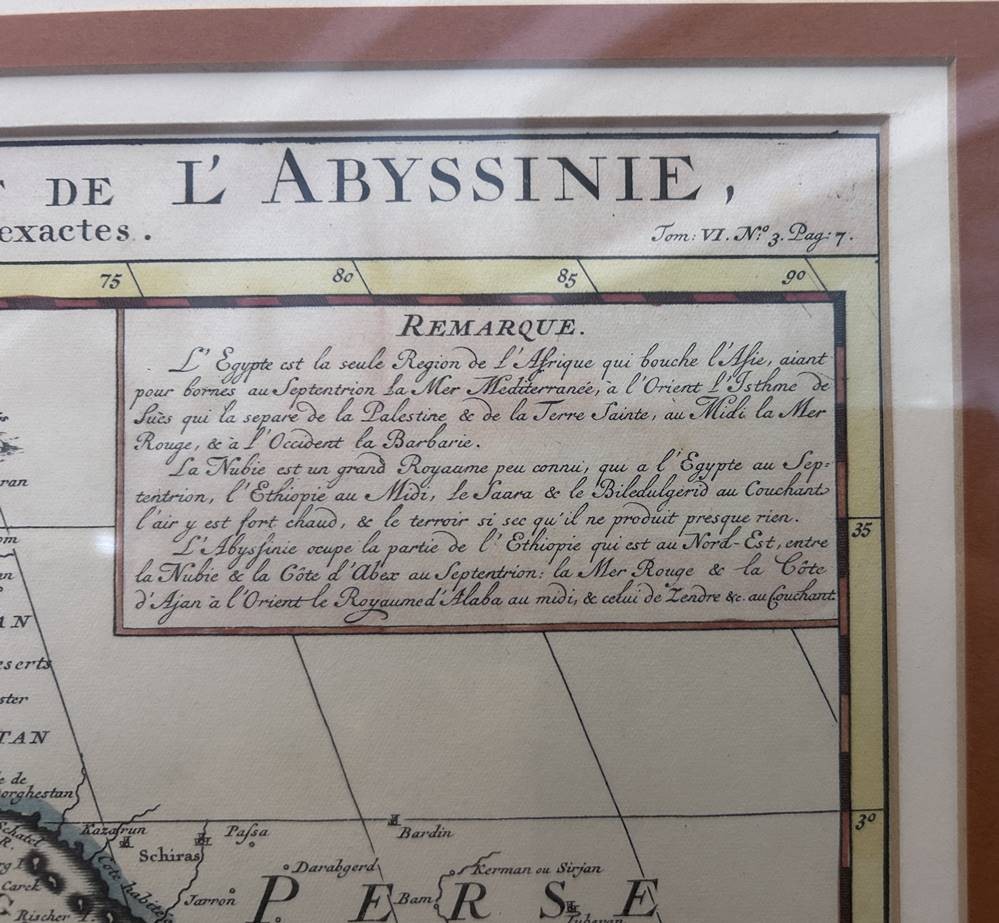 DE L'ABYSSINIE,
exactes.
Tom: VI. N.º 3. Pag: 7.
75 80 85 90
REMARQUE.
L'Egypte est la seule Region de l'Afrique qui bouche l'Asie, aiant
pour bornes au Septentrion La Mer Mediterraneé, à l'Orient L'Isthme de
Suès qui la separe de la Palestine & de la Terre Sainte, au Midi la Mer
Rouge, & à l'Occident la Barbarie.
La Nubie est un grand Royaume peu connu, qui a l'Egypte au Sep-
tentrion, l'Ethiopie au Midi, Le Saara & le Biledulgerid au Couchant
l'air y est fort chaud, & le terroir si sec qu'il ne produit presque rien.
L'Abyssinie ocupe la partie de l'Ethiopie qui est au Nord-Est, entre
la Nubie & la Côte d'Abex au Septentrion: la Mer Rouge & la Côte
d'Ajan à l'Orient le Royaume d'Alaba au midi, & celui de Zendre &c. au Couchant
ran
35
om
an
AN
eserts
ster
TAN
e de
orghestan
30
Schatel
R.
Kazafrun
Passa
Bardin
Schiras
Darabgerd
Kerman ou Sirjan
Carek
Côte habitée
Jarron
PERSE
Bam
Rischer